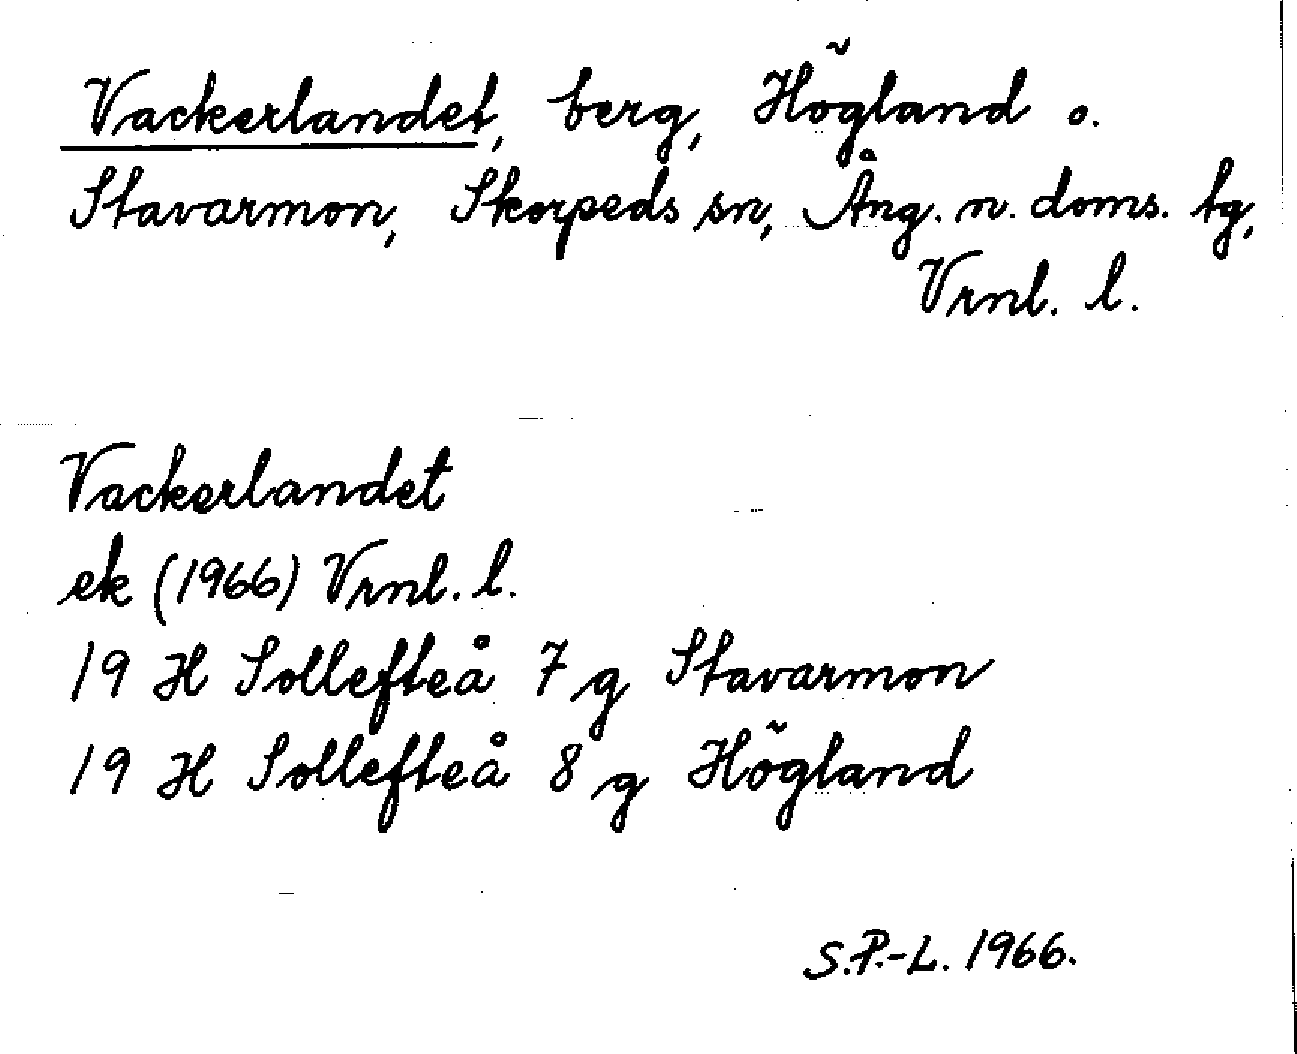 Vackerlandet, berg, Högland o.
Stavarmon, Skorpeds sn, Ång. n. doms. tg,
Vrnl. l.
Vackerlandet
ek (1966) Vrnl. l.
19 H Sollefteå 7 g Stavarmon
19 H Sollefteå 8 g Högland
S.P.-L. 1966.